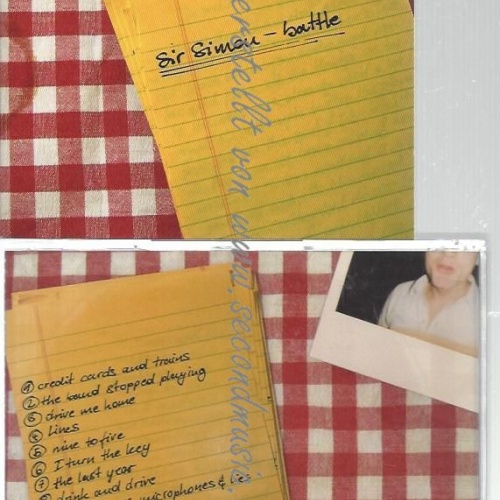 sir simon - battle
erstellt von www.secondmusic.
① credit cards and trains
② the band stopped playing
③ drive me home
④ Lines
⑤ nine to five
⑥ I turn the key
⑦ the last year
⑧ drink and drive
microphones &